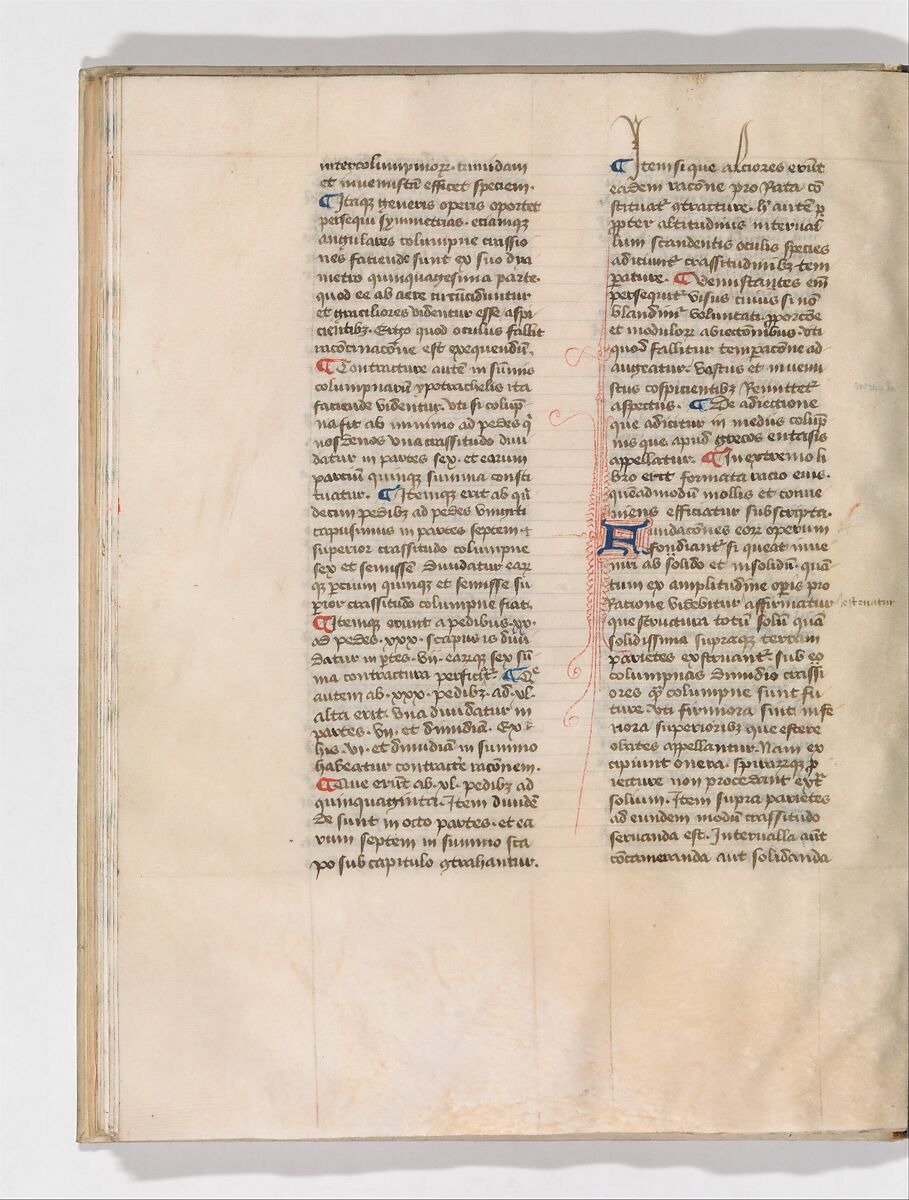 intercolumpniorꝝ. tumidam
et inuenustā efficet speciem.
¶ Itaqꝫ generis operis oportet
persequi symmetrias. etiamqꝫ
angulares columpne crassio
res faciende sunt ex suo dya
metro quinquagesima parte.
quod ee ab aere circūciduntur
et graciliores videntur esse aspi
cientibꝫ. Ergo quod oculus fallit
racōcinacōne est exequendū.
¶ Contracture autē in sūmis
columpnarū ypotrachelis ita
faciende videntur. vti si colūp
na sit ab mīnimo ad pedes qⁱ
nos denos vna crassitudo diui
datur in partes sex. et earum
partiū quinqꝫ summa consti
tuatur. ¶ Itemqꝫ erit ab qⁱⁿ
decim pedibꝫ ad pedes viginti
scapusimus in partes septem. et
superior crassitudo columpne
sex et semissē Diuidatur ear
qꝫ ꝑcium quinqꝫ et semisse su
ꝑior crassitudo columpne fiat.
¶ Itemqꝫ erunt a pedibus .xx.
ad pedes .xxx. scapus is diui
datur in ꝑtes .vii. earūqꝫ sex sū
ma contractura perficit̄. ¶ Qᵉ
autem ab .xxx. pedibꝫ ad .xl.
alta erit. vna diuidatur in
partes .vii. et dimidiā. Ex
his .vi. et dimidiā in summo
habeatur contracte racōnem.
¶ Que erūt ab .xl. pedibꝫ ad
quinquaginta. Item diuidē
de sunt in octo partes. et ea
rum septem in summo sca
po sub capitulo ꝯtrahantur.
¶ Item si que alciores erūt
eadem racōne pro Rata cō
stituat̄ ꝯtracture. h̄ autē ꝓ
pter altitudinis interual
lum scandentis oculis species
adiciunt̄ crassitudinibꝫ tem
pature. ¶ Venustantes em̄
persequit̄ visus cuius si nō
blandim̄ voluntati ꝓporcōe
et modulorꝝ adiectionibus. vti
quod fallitur temꝑacōne ad
augeatur. Vastus et inuenu
stus cōspicientibꝫ Remittet̄
aspectus. ¶ De adiectione
que adicitur in mediis colūp
nis que apud grecos entasis
appellatur. ¶ In extremo li
bro erit formata racio eius.
quēadmodū mollis et conue
niens efficiatur subscripta.
Fundacōnes eorꝝ operum
fondiant̄ si queat inue
niri ab solido et in solidū. quā
tum ex amplitudine oꝑis pro
Racione videbitur affirmatur exstruatur
que structura totū solū quā
solidissima supraqꝫ terram
parietes exstruant̄. sub eo
columpnas Dimidio crassi
ores qꝫ columpne sunt fu
ture. vti firmiora sint infe
riora superioribꝫ que estere
obates appellantur. Nam ex
cipiunt onera. spirarūqꝫ ꝓ
iecture non procedant extᵃ
solium. Item supra parietes
ad eundem modū crassitudo
seruanda est. Interualla aūt
cōcameranda aut solidanda